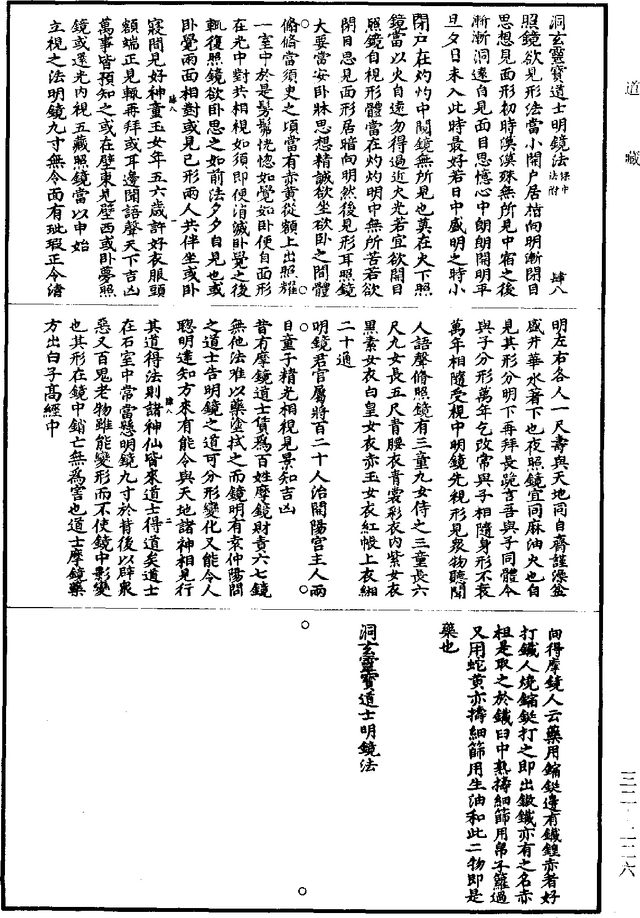 道藏
洞玄靈寶道士明鏡法
肆八
照鏡欲見形法當小開戶居暗向明漸閉目
思想見面形初時漠漠殊無所見中宿之後
漸漸洞遠自見面目思憶心中朗朗開明平
旦夕日未入此時最好若日中盛明之時小
閉戶在灼灼中闚鏡無所見也莫在火下照
鏡當以火自遠勿得逼近火光若宜欲開目
照鏡自視形體當在灼灼明中無所苦若欲
閉目思見面形居暗向明然後見形耳照鏡
大要當安卧牀思想精誠欲坐欲卧之間體
翛翛當須臾之項當有赤黄從額上出照耀
一室中於是髣髴恍惚如覺如卧便自面形
在光中對共相視如須即便消滅卧覺之後
輒復照鏡欲卧思之如前法夕夕自見也或
卧覺兩面相對或見己形兩人共伴坐或卧
寢間見好神童玉女年五六歲許好衣服頭
額端正見輒再拜或耳邊聞語聲天下吉凶
萬事皆預知之或在壁東見壁西或卧夢照
鏡或還光内視五藏照鏡當以申始
立視之法明鏡九寸無令面有玼瑕正令渚
明左右各人一尺壽與天地同自齋謹澡盆
盛井華水著下也夜照鏡宜同麻油火也自
見其形分明下再拜長跪言吾與子同體今
與子分形萬年乞改常與子相隨身形不衰
萬年相隨受視中明鏡先視形見衆物聽聞
人語聲脩照鏡有三童九女侍之三童長六
尺九女長五尺青腰衣青裳彩衣内紫女衣
黑素女衣白皇女衣赤玉女衣紅帳上衣緗
二十通
明鏡君官屬將百二十人治開陽宫主人兩
目童子精光相視見景知吉凶
昔有摩鏡道士賃爲百姓摩鏡財責六七鏡
無他法唯以藥塗拭之而鏡明有袁仲陽問
之道士告明鏡之道可分形變化又能令人
聰明逺知方來有能令與天地諸神相見行
其道得法則諸神仙皆來道士得道矣道士
在石室中常當懸明鏡九寸於背後以辟衆
惡又百鬼老物雖能變形而不使鏡中影變
也其形在鏡中銷亡無爲害也道士摩鏡藥
方出白子高經中
向得摩鏡人云藥用鍮鋌邊有鐵鍠亦者好
打鐵人燒鍮鋌打之即出鍬鐵亦有之名亦
柤是取之於鐵臼中熟擣細篩用帛子羅過
又用蛇黄亦擣細篩用生油和此二物即是
藥也
洞玄靈寶道士明鏡法
三二·二二六